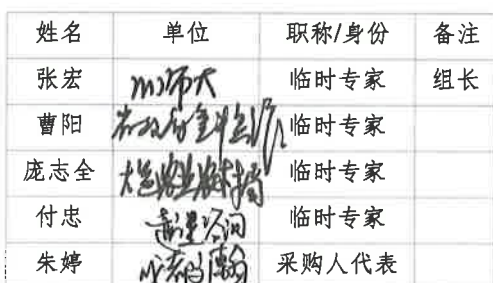 姓名 单位 职称/身份 备注
张宏 川师大 临时专家 组长
曹阳 临时专家
庞志全 临时专家
付忠 临时专家
朱婷 采购人代表